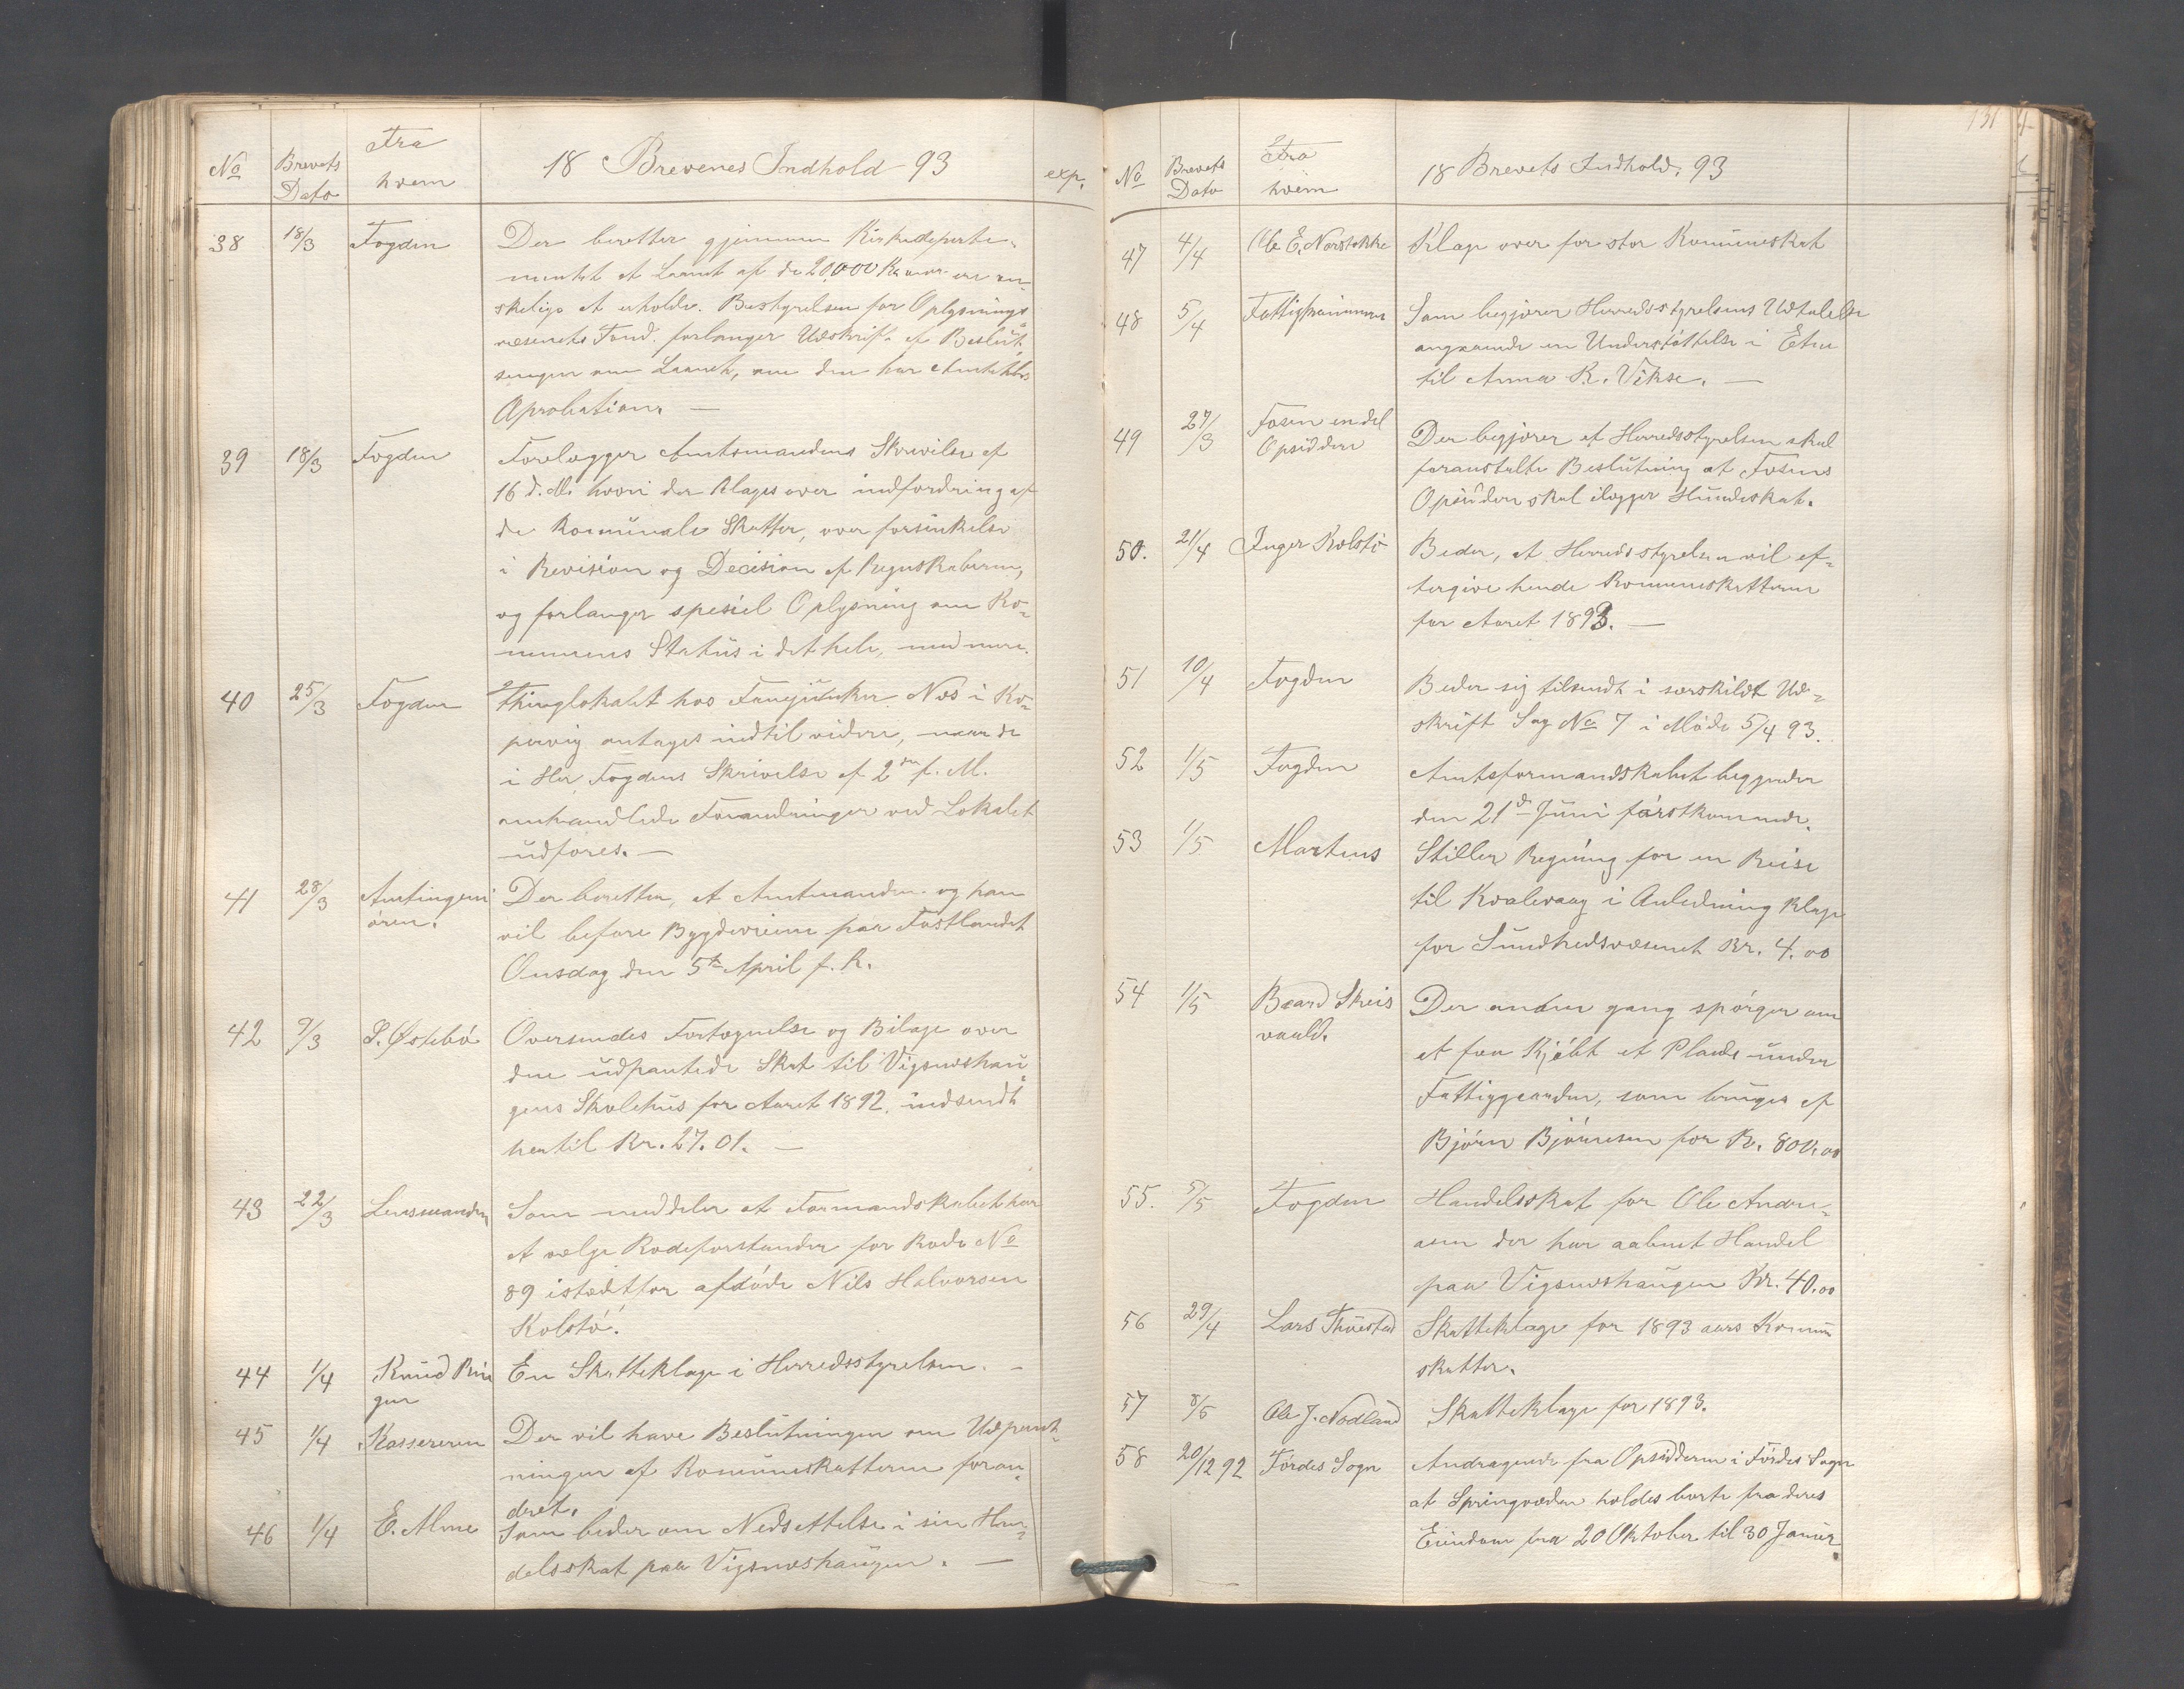 131
No
Brevets Dato
Fra hvem
18 Brevenes Indhold 93
exp.
38 18/3 Fogden Der beretter gjennem Kirkedeparte-
mentet at Laanet af de 20,000 Kroner
skelige at erholde. Bestyrelsen for Oplysnings
væsenets Fond forlanger Udskrift af Beslut
ningen om Laanet, om den har Amtets
Aprobation. —
39 18/3 Fogden Forelægger Amtsmandens Skrivelse af
16 d. M. hvori der klages over indfordring af
de Kommunale Skatter, over forsinkelse
i Revision og Decision af Regnskaberne,
og forlanger speciel Oplysning om Ko-
munens Status i det hele, med mere.
40 25/3 Fogden Thinglokalet hos Fanejunker Næs i Ko-
pervig antages indtil videre, naar de
i Hr. Fogdens Skrivelse af 2den f. M.
omhandlede Forandringer ved Lokalet
udføres. —
41 28/3 Amtingeni
øren. Der beretter, at Amtmanden og han
vil befare Bygdeveiene paa Fastlandet
Onsdag den 5te April f. k.
42 9/3 S. Østebø Oversendes Fortegnelse og Bilage over
den udpantede Skat til Vigsneshau-
gens Skolehus for Aaret 1892. indsendt
hertil Kr. 27.01. —
43 22/3 Lensmanden Som meddeler at Formandskabet har
at vælge Rodeforstander for Rode No
89 istedetfor afdøde Nils Halvorsen
Kolstø.
44 1/4 Knud
En Skatteklage i Herredsstyrelsen. —
45 1/4 Kassereren Der vil have Beslutningen om Udpant-
ningen af Kommuneskatterne foran-
dret.
46 1/4 E. Alme Som beder om Nedsettelse i sin Han-
delsskat paa Vigsneshaugen. —
No
Brevets Dato
Fra hvem
18 Brevets Indhold, 93
47 4/4 Ole E. Norstokke Klage over for stor Kommuneskat
48 5/4 Fattigkommissionen Som begjærer Herredsstyrelsens Udtalelse
angaaende en Understøttelse i Etne
til Anna K. Vikse. —
49 27/3 Fosen endel
Opsiddere Der begjærer at Herredsstyrelsen skal
foranstalte Beslutning at Fosens
Opsiddere skal ilegges Hundeskat.
50. 21/4 Inger Kolstø Beder, at Herredsstyrelsen vil ef-
tergive hende Kommuneskatterne
for Aaret 1893. —
51 10/4 Fogden Beder sig tilsendt i særskildt Ud-
skrift Sag No 7 i Møde 5/4 93.
52 1/5 Fogden Amtsformandskabet begynder
den 21de Juni førstkommende.
53 1/5 Martens Stiller Regning for en Reise
til Kvalevaag i Anledning Klage
for Sundhedsvæsenet Kr. 4.00
54 1/5 Baard Skeis
vauld. Der anden gang spørger om
at faa Kjøbt et Plads under
Fattiggaarden, som bruges af
Bjørn Bjørnesen for Kr. 800.00
55. 5/5 Fogden Handelsskat for Ole Andre-
asen der har aabnet Handel
paa Vigsneshaugen Kr. 40.00
56 29/4 Lars Thuestad Skatteklage for 1893 aars Komune
skatter.
57 8/5 Ole J. Nodland Skatteklage for 1893.
58 20/12 92 Førdes Sogn Andragende fra Opsidderne i Førdes Sogn
at Springvæder holdes borte fra deres
Eiendom fra 20 Oktober til 30 Januar.